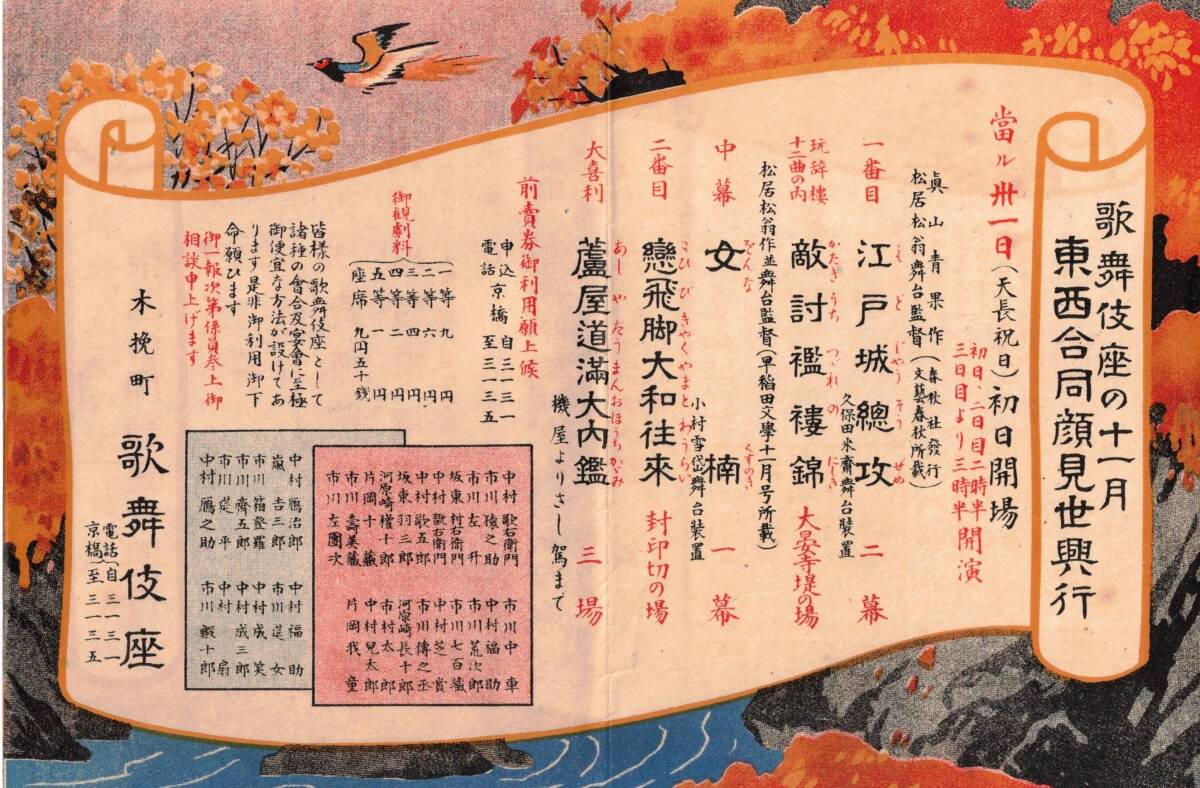 歌舞伎座の十一月
東西合同顔見世興行
當ル卅一日(天長祝日)初日開場
初日、二日目二時半
三日目より三時半
開演
眞山青果作(春秋社發行)
松居松翁舞台監督(文藝春秋所載)
一番目
江戸城總攻
えどじやうそうぜめ
二幕
久保田米齋舞台装置
玩辞樓
十二曲の内
敵討襤褸錦
かたきうちつゞれのにしき
大晏寺堤の場
松居松翁作並舞台監督(早稲田文學十一月号所載)
中幕
女楠
をんなくすのき
一幕
小村雪岱舞台装置
二番目
戀飛脚大和往來
こひびきやくやまとわうらい
封印切の場
大喜利
蘆屋道滿大内鑑
あしやだうまんおほうちかゞみ
三場
機屋よりさし駕まで
前賣券御利用願上候
申込 自三一三一
電話京橋 至三一三五
御観劇料
一等 九円
二等 六円
三等 四円
四等 二円
五等 一円
座席 九円五十錢
皆様の歌舞伎座として
諸種の會合及宴會に至極
御便宜な方法が設けてあ
ります是非御利用御下
命願ひます
御一報次第係員参上御
相談申上げます
木挽町 歌舞伎座
電話 自三一三一
京橋 至三一三五
中村歌右衛門
市川猿之助
市川左升
坂東村右衛門
中村歌右衛門
中村歌五郎
坂東羽三郎
河原崎權十郎
片岡十藏
市川壽美藏
市川左團次
市川中車
中村福助
市川荒次郎
市川七百藏
中村芝賞
市川傳之丞
河原崎長十郎
市村太郎
中村兒太郎
片岡我童
中村鴈治郎
嵐吉三郎
市川箱登羅
市川齊五郎
市川莚平
中村鴈之助
中村福助
市川莚女
中村成笑
中村成三郎
中村扇
市川蝦十郎